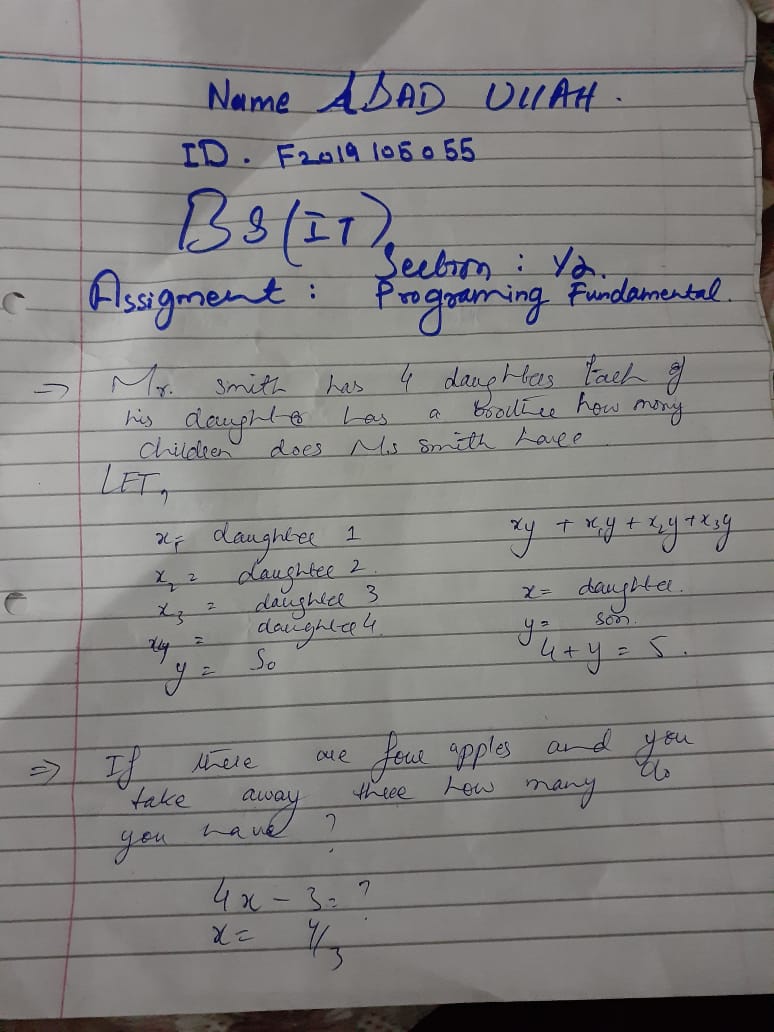 Name ABAD UllAH.
ID. F2019105055
BS(IT)
Section : Y2.
Assigment : Programing Fundamental.
⇒ Mr. Smith has 4 daughters Each of
his daughter has a brother how many
children does Ms Smith have
LET,
x = daughter 1
x₂ = daughter 2.
x₃ = daughter 3
x4 = daughter 4.
y = So
xy + x,y + x₂y + x₃y
x = daughter.
y = son.
4 + y = 5.
⇒ If there are four apples and you
take away three how many do
you have ?
4x - 3 = ?
x = 4/3